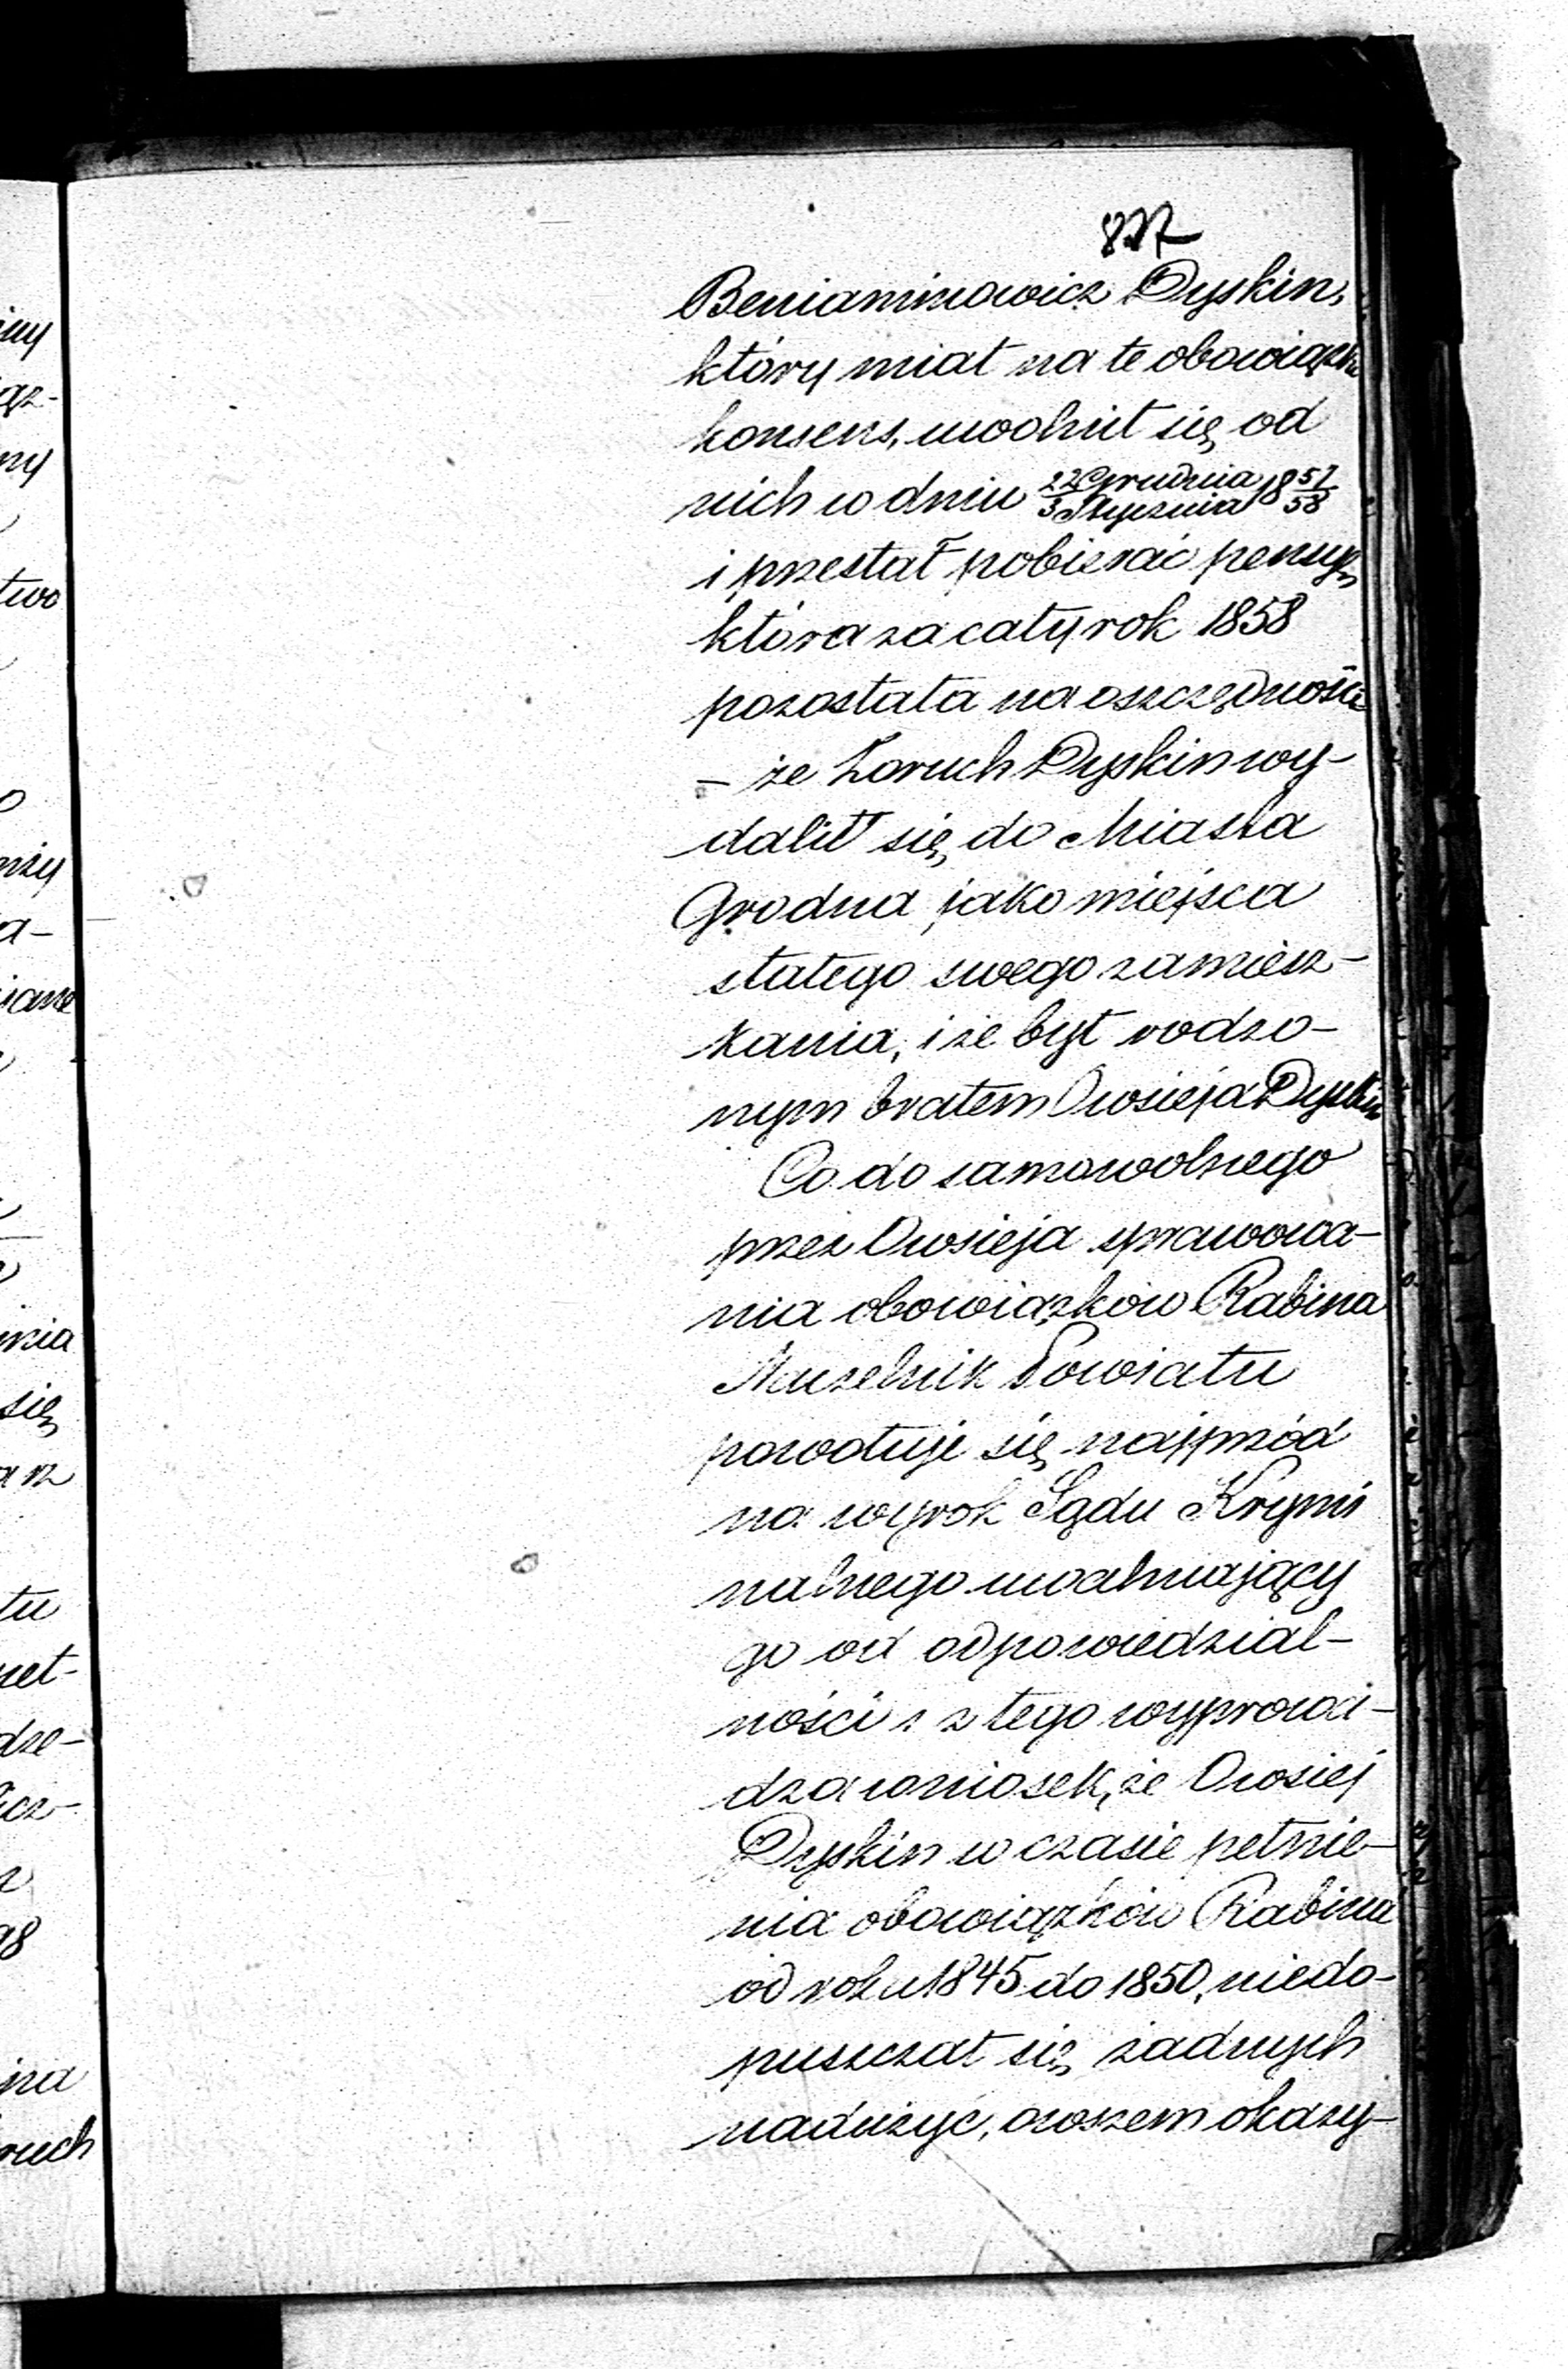 Beniaminowicz Dyskin,
który miał na te obowiązki
konsens, uwolnił się od
nich w dniu 22 Grudnia / 3 Stycznia 18 57/58
i przestał pobierać pensyę,
która za cały rok 1858
pozostała na oszczędności
– że Zoruch Dyskin wy-
dalił się do Miasta
Grodna jako miejsca
stałego swego zamiesz-
kania, i że był rodzo-
nym bratem Owsieja Dyskin
Co do samowolnego
przez Owsieja sprawowa-
nia obowiązków Rabina
Naczelnik Powiatu
powołuje się najprzód
na wyrok Sądu Krymi
nalnego uwalniający
go od odpowiedzial-
ności i z tego wyprowa-
dza wniosek, że Owsiej
Dyskin w czasie pełnie-
nia obowiązków Rabina
od roku 1845 do 1850, niedo-
puszczał się żadnych
nadużyć, owszem okazy-
iny
ąz-
ny
two
nży
a-
iane
nia
się
tu
net-
dze-
icz-
98
ina
ruch